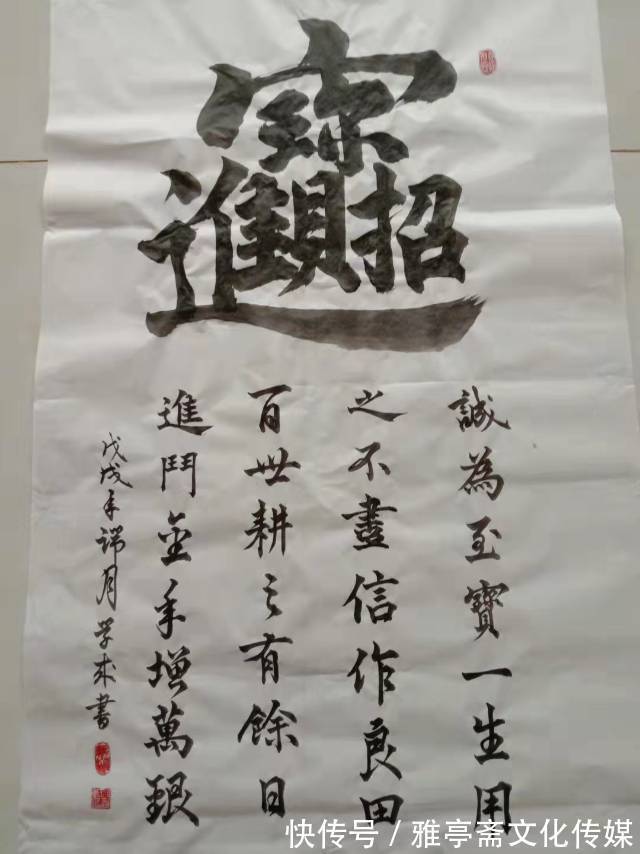 招財進寶
誠為至寶一生用
之不盡信作良田
百世耕之有餘日
進鬥金年增萬銀
戊戌年端月学成書
快传号 / 雅亭斋文化传媒